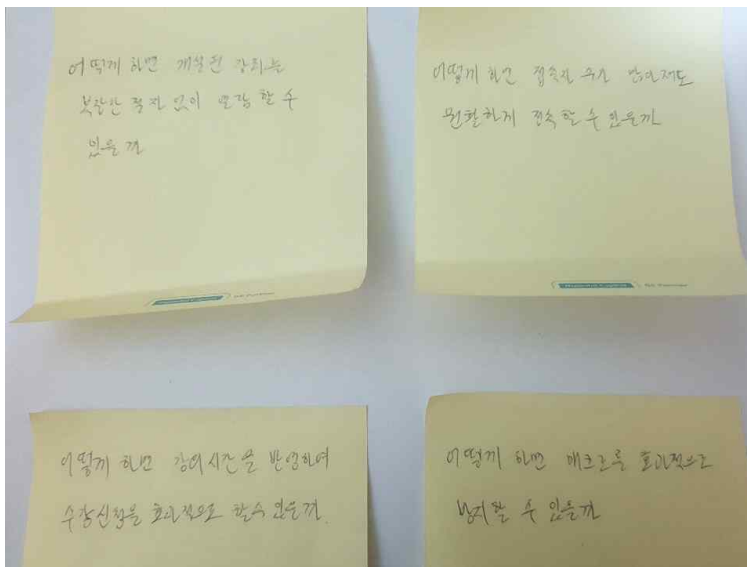 어떻게 하면 개설된 강의는
복잡한 절차 없이 수강 할 수
있을까
어떻게 하면 접속자 수가 많아져도
원활하게 접속 할 수 있을까
어떻게 하면 강의시간을 반영하여
수강신청을 효과적으로 할수 있을까.
어떻게 하면 매크로를 효과적으로
방지할 수 있을까